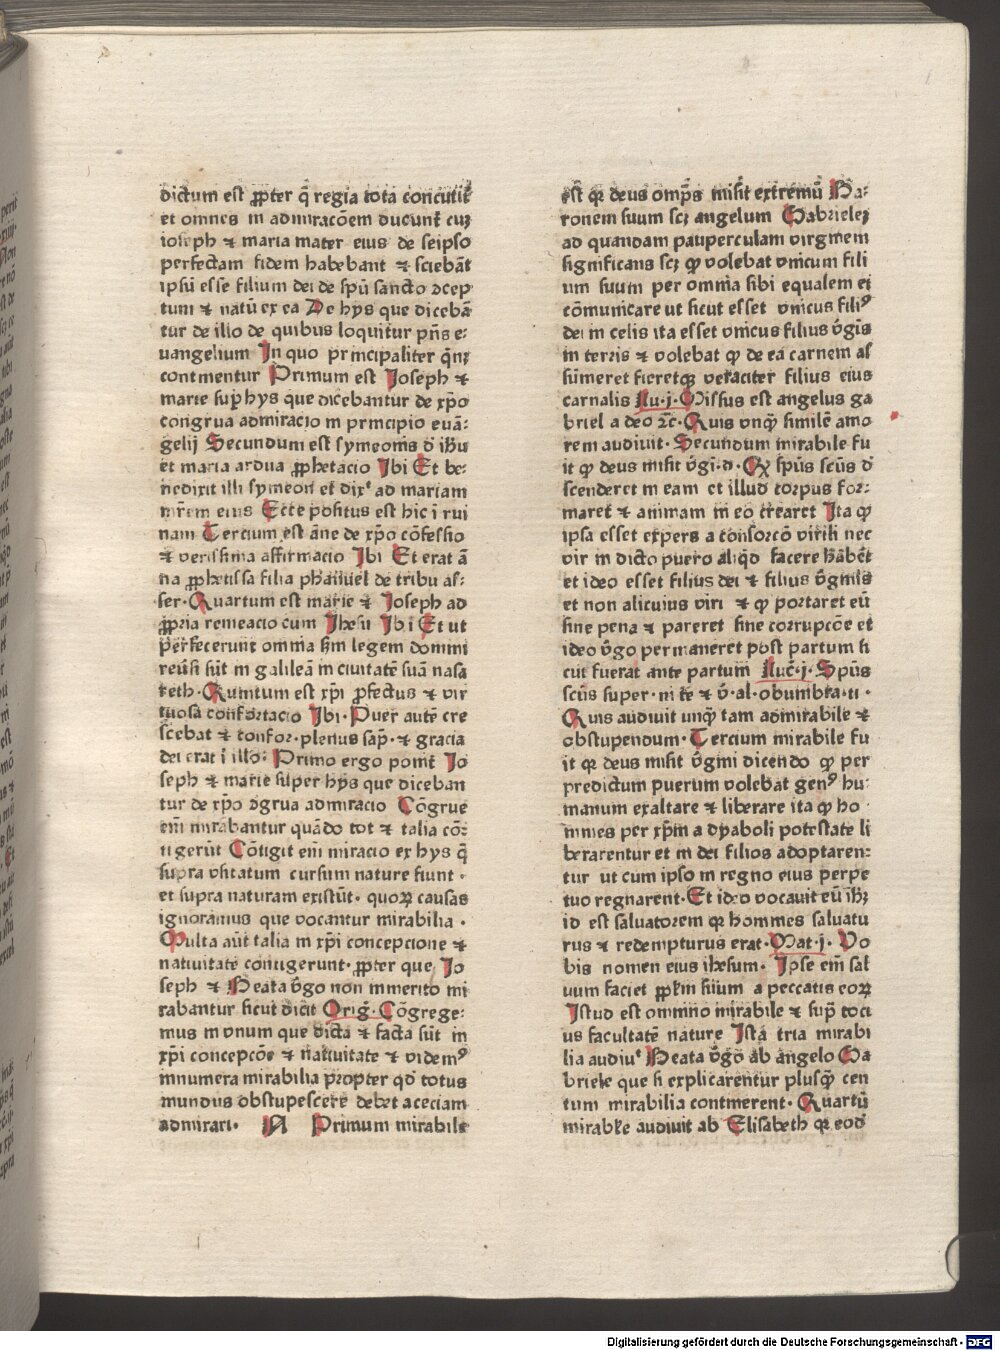 dictum est ꝓpter q̄ regia tota concutit᷑
et omnes in admiracōem ducunt᷑ cuꝫ
ioseph ⁊ maria mater eius de seipso
perfectam fidem habebant ⁊ sciebāt
ipsū esse filium dei de spū sancto ↄcep
tum ⁊ natū ex ea De hys que dicebā
tur de illo de quibus loquitur pn̄s e⸗
uangelium In quo principaliter qn̄ꝫ
continentur Primum est Joseph ⁊
marie suꝑ hys que dicebantur de xp̄o
congrua admiracio in principio euā⸗
gelij Secundum est symeonis d̄ ih̄u
et maria ardua ꝓphetacio Jbi Et be⸗
nedixit illi symeon et dixᵗ ad mariam
mr̄em eius Ecce positus est hic ī rui
nam Tercium est āne de xp̄o cōfessio
⁊ verissima affirmacio Jbi Et erat ā
na ꝓphetissa filia phanuel de tribu as⸗
ser· Quartum est marie ⁊ Joseph ad
ꝓpria remeacio cum Jhesu Jbi Et ut
perfecerunt omnia scd̄m legem domini
reūsi sūt in galileā in ciuitatē suā nasa
reth· Quintum est xp̄i ꝓfectus ⁊ vir
tuosa confortacio Jbi· Puer autē cre
scebat ⁊ confor· plenus sap̄· ⁊ gracia
dei erat ī illo: Primo ergo ponit᷑ Jo
seph ⁊ marie super hys que diceban
tur de xp̄o ↄgrua admiracio Cōgrue
em̄ mirabantur quādo tot ⁊ talia cō⸗
tigerūt Cōtigit em̄ miracio ex hys q̄
supra vsitatum cursum nature fiunt ·
et supra naturam existūt· quoꝝ causas
ignoramus que vocantur mirabilia ·
Multa aūt talia in xp̄i concepcione ⁊
natiuitate contigerunt· ꝓpter que Jo
seph ⁊ Beata v̄go non inmerito mi
rabantur sicut dicit Oriḡ· Cōgrege⸗
mus in vnum que dicta ⁊ facta sūt in
xp̄i concepcōe ⁊ natiuitate ⁊ videmꝰ
innumera mirabilia propter qd̄ totus
mundus obstupescere debet ac eciam
admirari· Primum mirabile
est ꝙ deus omp̄s misit extremū Ba⸗
ronem suum scꝫ angelum Gabrieleꝫ
ad quandam pauperculam virginem
significans scꝫ ꝙ volebat vnicum fili
um suum per omnia sibi equalem ei
cōmunicare ut sicut esset vnicus filiꝰ
dei in celis ita esset vnicus filius v̄gis
in terris ⁊ volebat ꝙ de ea carnem as
sūmeret fieretqꝫ veraciter filius eius
carnalis Lu·j· Missus est angelus ga
briel a deo ⁊c̄· Quis vnqͣ simile amo
rem audiuit· Secundum mirabile fu
it ꝙ deus misit v̄gi·d· Qx̄ spūs scūs d̄
scenderet in eam et illud corpus for⸗
maret ⁊ animam in eo crearet Jta ꝙ
ipsa esset expers a consorcō virili nec
vir in dicto puero aliqͥd facere hābet
et ideo esset filius dei ⁊ filius v̄ginis
et non alicuius viri ⁊ ꝙ portaret eū
sine pena ⁊ pareret sine corrupcōe et
ideo v̄go permaneret post partum si
cut fuerat ante partum Luc̄·j· Spūs
scūs super·ni te ⁊ v̄·al·obumbra·ti ·
Quis audiuit unqͣ tam admirabile ⁊
obstupendum· Tercium mirabile fu
it ꝙ deus misit v̄gini dicendo ꝙ per
predictum puerum volebat genꝰ hu⸗
manum exaltare ⁊ liberare ita ꝙ ho
mines per xp̄m a dyaboli potestate li
berarentur et in dei filios adoptaren⸗
tur ut cum ipso in regno eius perpe
tuo regnarent· Et ideo vocauit eū ih̄ꝫ
id est saluatorem ꝙ homines saluatu
rus ⁊ redempturus erat· Mat·j· Vo
bis nomen eius ihesum· Jpse em̄ sal
uum faciet pplm̄ suum a peccatis eoꝝ
Jstud est omnino mirabile ⁊ suꝑ toci
us facultatē nature Jsta tria mirabi
lia audiuᵗ Beata v̄go ab angelo Ga
briele que si explicarentur plusqͣ cen
tum mirabilia continerent· Quartū
mirabile audiuit ab Elisabeth ꝙ eod̄
Digitalisierung gefördert durch die Deutsche Forschungsgemeinschaft - DFG